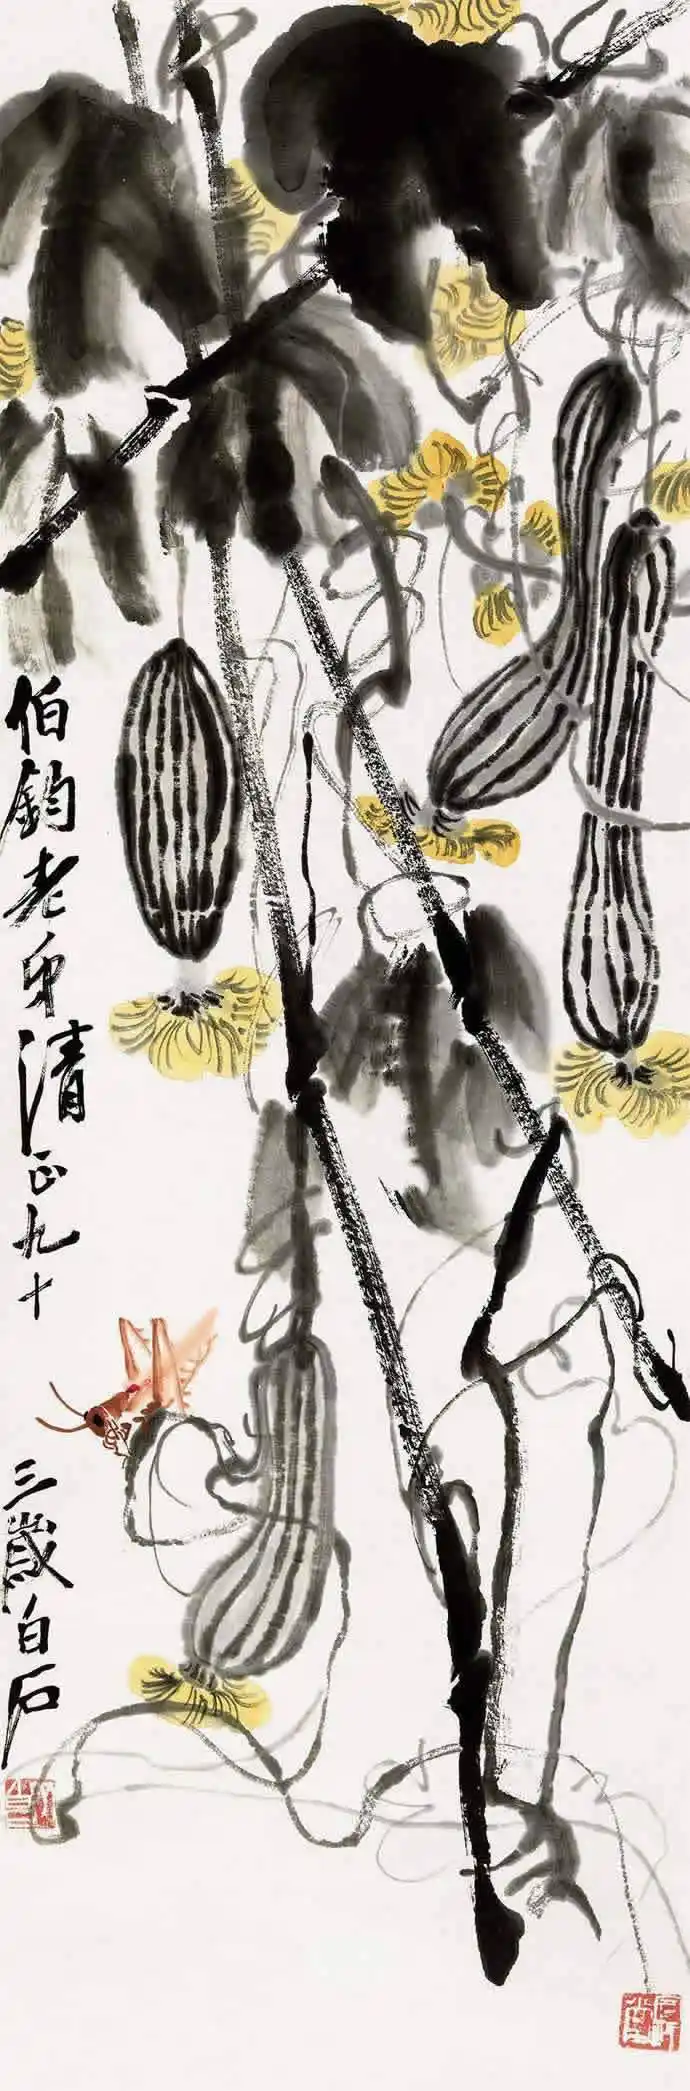 伯钧老弟清正九十
三岁白石